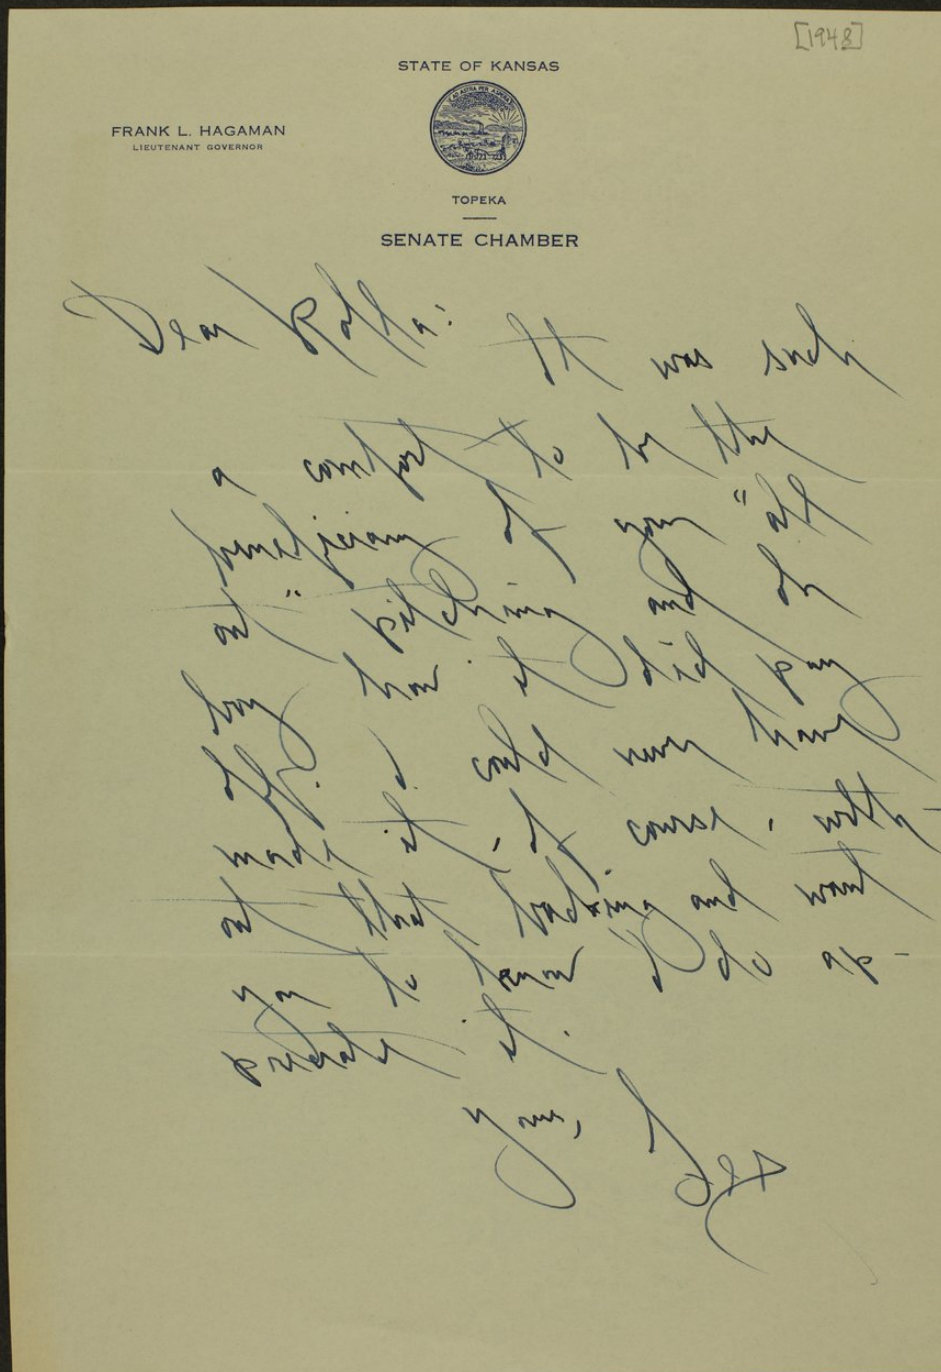 [1948]
STATE OF KANSAS
FRANK L. HAGAMAN
LIEUTENANT GOVERNOR
TOPEKA
SENATE CHAMBER
Dear Rolla: It was such
a comfort to be the
beneficiary of your "all
out" pitching and oh
boy how it did pay
off. I could never have
made it, of course, with-
out that backing and want
you to know I do ap-
preciate it.
Yours,